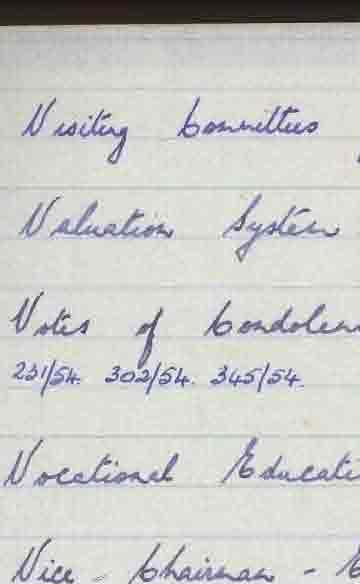 Visiting Committees
Valuation System
Votes of Condolen
231/54. 302/54. 345/54.
Vocational Educati
Vice - Chairman -